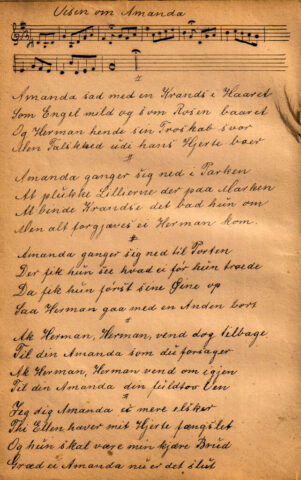 Visen om Amanda
Amanda sad med en Krands i Haaret
Som Engel mild og som Rosen baaret
Og Herman hende sen Troskab svor
Men Falskhed udi hans Hjerte boer
Amanda ganger sig ned i Parken
At plukke Lillierne der paa Marken
At binde Krandse det bad hun om
Men alt forgjæves ei Herman kom.
Amanda ganger sig ned til Porten
Der fik hun see hvad ei för hun troede
Da fik hun först sine Øine op
Saa Herman gaa med en Anden bort
Ak Herman, Herman, vend dog tilbage
Til din Amanda som du forsager
Ak Herman, Herman vend om igjen
Til din Amanda din fuldtroe Ven
Jeg dig Amanda ei mere elsker
Thi Ellen haver mit Hjerte fængslet
Og hun skal være min kjære Brud
Græd ei Amanda nu er det slut